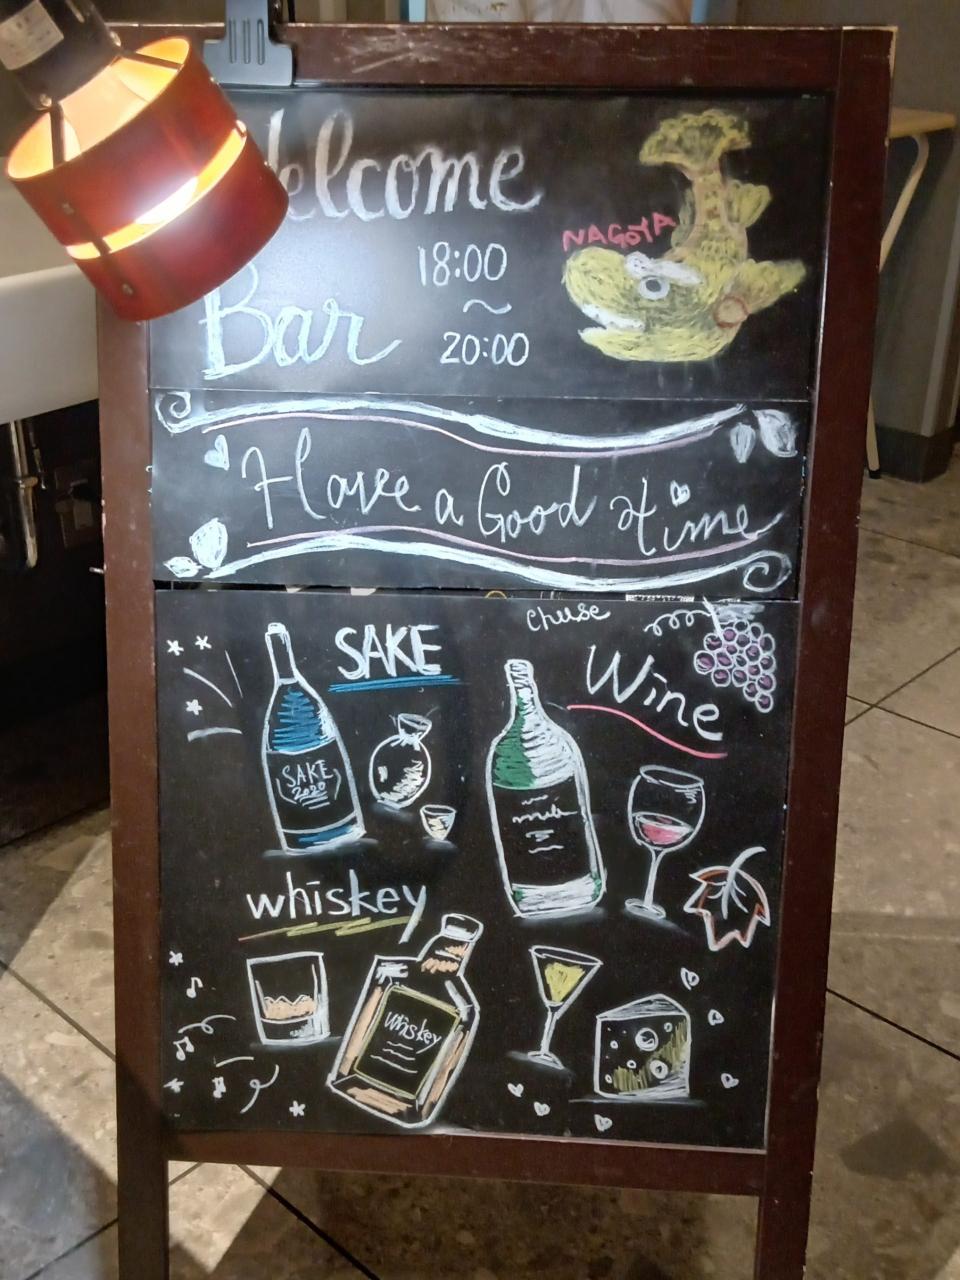 Welcome
NAGOYA
18:00
～
Bar
20:00
Have a Good time
cheese
SAKE
Wine
SAKE
2020
whiskey
whiskey